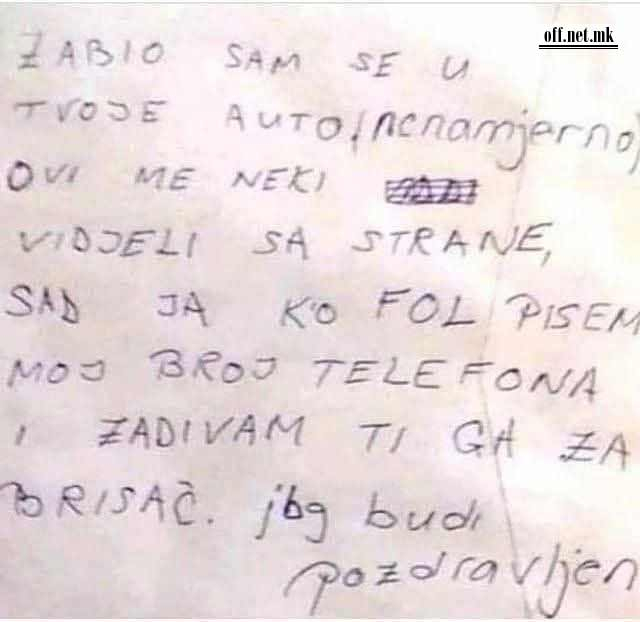 off.net.mk
ZABIO SAM SE U
TVOJE AUTO (nenamjerno)
OVI ME NEKI
VIDJELI SA STRANE,
SAD JA K'O FOL PISEM
MOJ BROJ TELEFONA
I ZADIVAM TI GA ZA
BRISAČ. jbg budi
pozdravljen